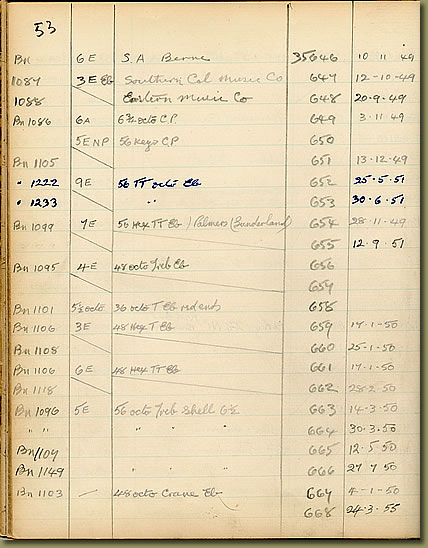 53
Bn 6E S A Berne 35646 10 11 49
1087 3E Eb Southern Cal Music Co 647 12-10-49
1088 Eastern Music Co 648 20-9-49
Bn 1086 6A 6½ octo C.P. 649 3-11-49
5E NP 56 keys C.P 650
Bn 1105 651 13-12-49
" 1222 9E 56 TT octo Eb 652 25-5-51
" 1233 " 653 30-6-51
Bn 1099 7E 56 Hex TT Eb / Palmers (Sunderland) 654 28-11-49
655 12-9-51
Bn 1095 4E 48 octo Treb Eb 656
657
Bn 1101 5¾ octo 36 octo T Eb rd ends 658
Bn 1106 3E 48 Hex T Eb 659 17-1-50
Bn 1108 660 25-1-50
Bn 1106 6E 48 Hex TT Eb 661 17-1-50
Bn 1118 662 28-2-50
Bn 1096 5E 56 octo Treb Shell G½ 663 14-3-50
" " " " " 664 30.3.50
Bn 1104 665 12-5 50
Bn 1149 " " " 666 27 7 50
Bn 1103 — 48 octo Crane Eb 667 4-1-50
668 24-3-55